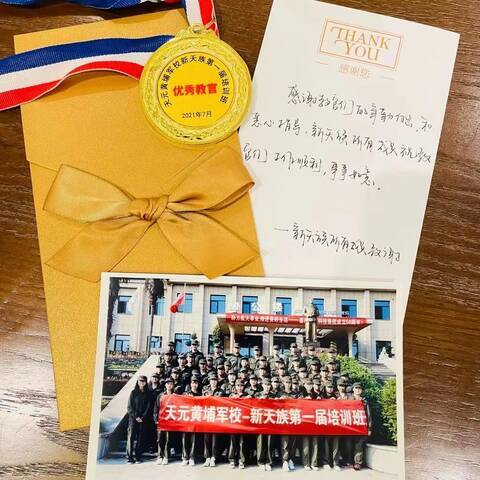 天元黄埔军校新天族第一届培训班
优秀教官
2021年7月
THANK
YOU
感谢您
感谢教官们的辛勤付出和
悉心指导,新天族所有成员祝教
官们工作顺利,事事如意。
—新天族所有成员敬谢
天元黄埔军校-新天族第一届培训班